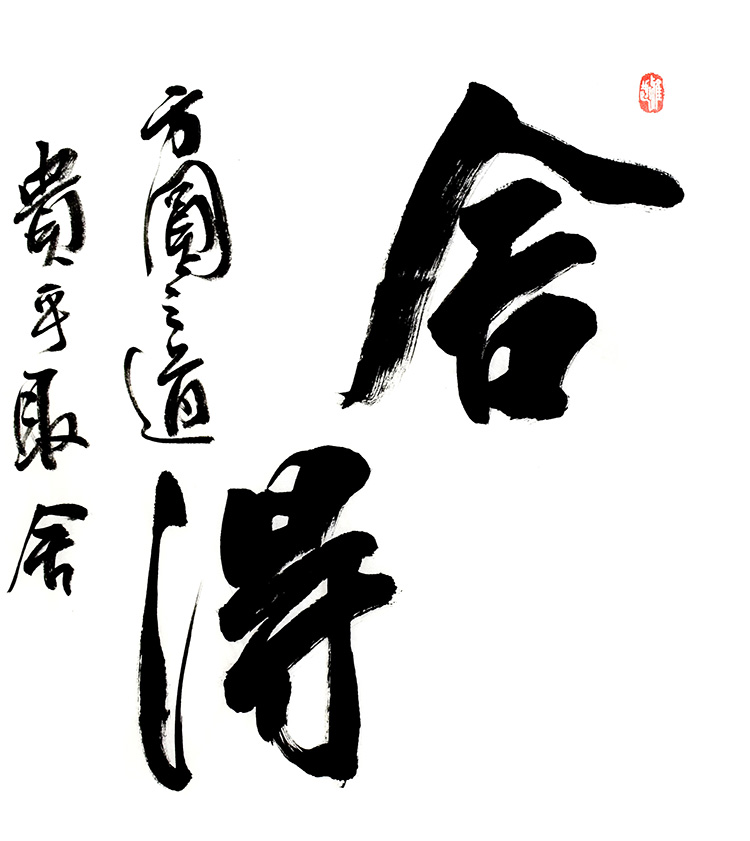 舍
得
方圓之道
貴乎取舍